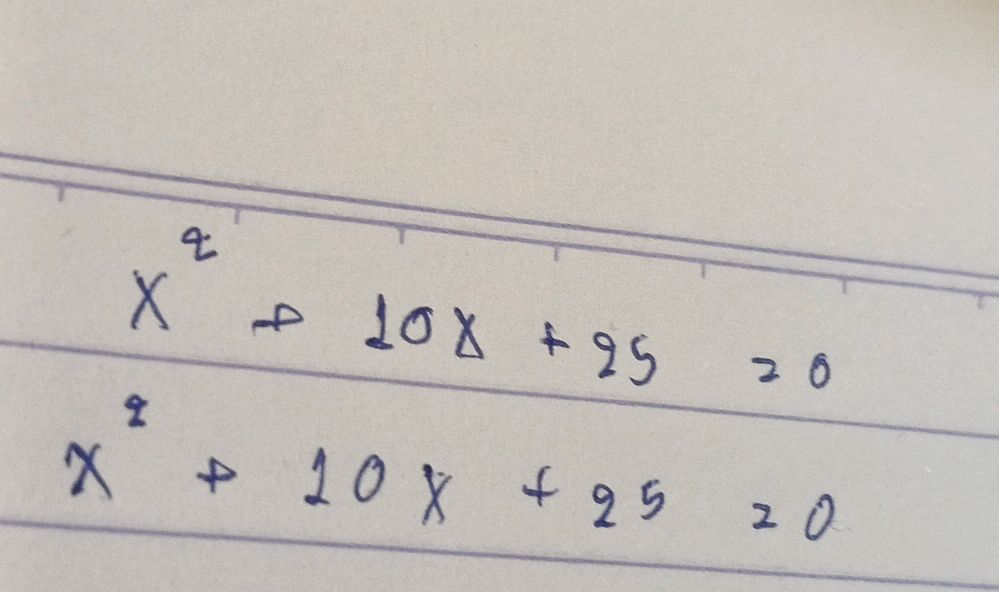 x² + 10x + 25 = 0
x² + 10x + 25 = 0